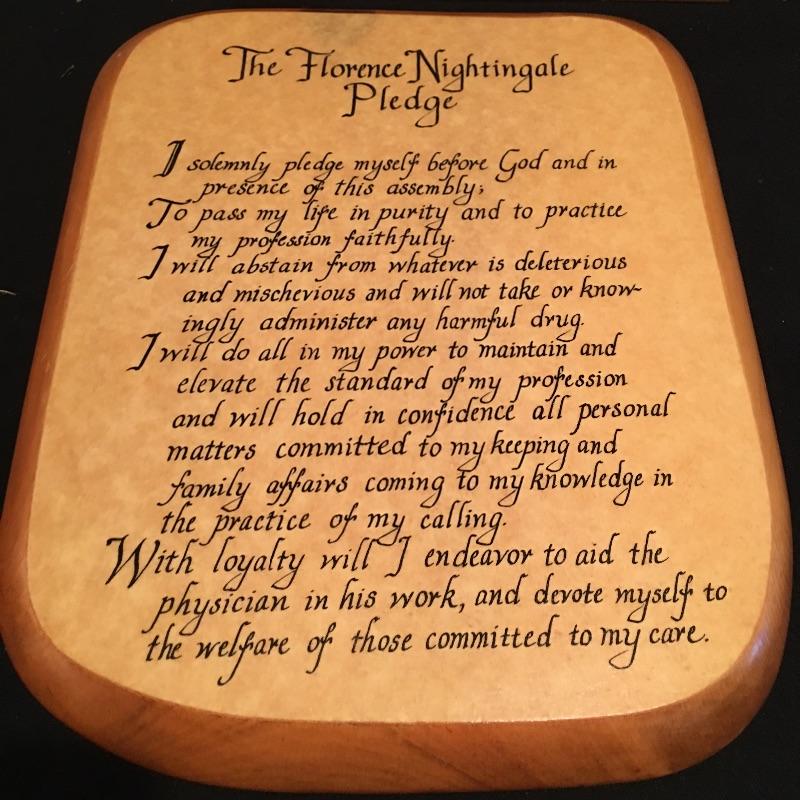 The Florence Nightingale
Pledge
I solemnly pledge myself before God and in
presence of this assembly;
To pass my life in purity and to practice
my profession faithfully.
I will abstain from whatever is deleterious
and mischevious and will not take or know-
ingly administer any harmful drug.
I will do all in my power to maintain and
elevate the standard of my profession
and will hold in confidence all personal
matters committed to my keeping and
family affairs coming to my knowledge in
the practice of my calling.
With loyalty will I endeavor to aid the
physician in his work, and devote myself to
the welfare of those committed to my care.